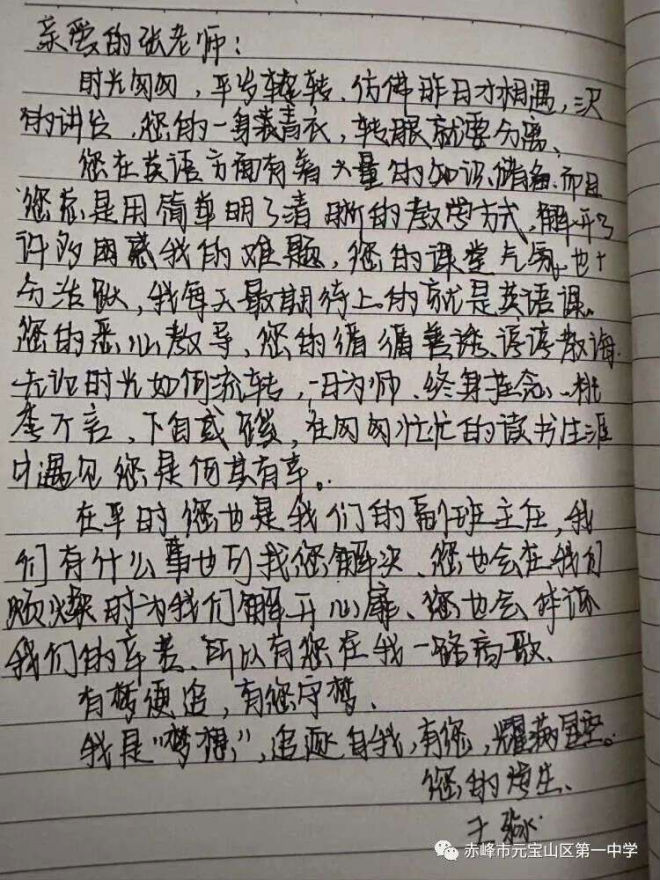 亲爱的张老师：
时光匆匆，平岁转转、仿佛昨日才相遇，三尺
的讲台，您的一身着青衣，转眼就要分离、
您在英语方面有着大量的知识储备，而且
您总是用简单明了清晰的教学方式，解开了
许多困惑我的难题，您的课堂气氛也十
分活跃，我每天最期待上的就是英语课。
您的悉心教导，您的循循善诱、谆谆教诲
无论时光如何流转，一日为师、终身挂念、桃
李不言，下自成蹊，在匆匆忙忙的读书生涯
中遇见您是何其有幸。
在平时您也是我们的副班主任，我
们有什么事也可找您解决、您也会在我们
烦燥时为我们解开心扉、您也会体谅
我们的辛苦、所以有您在我一路高歌、
有梦便追，有您守梦、
我是“梦想”，追逐自我，有您，耀满星空。
您的学生、
王
赤峰市元宝山区第一中学